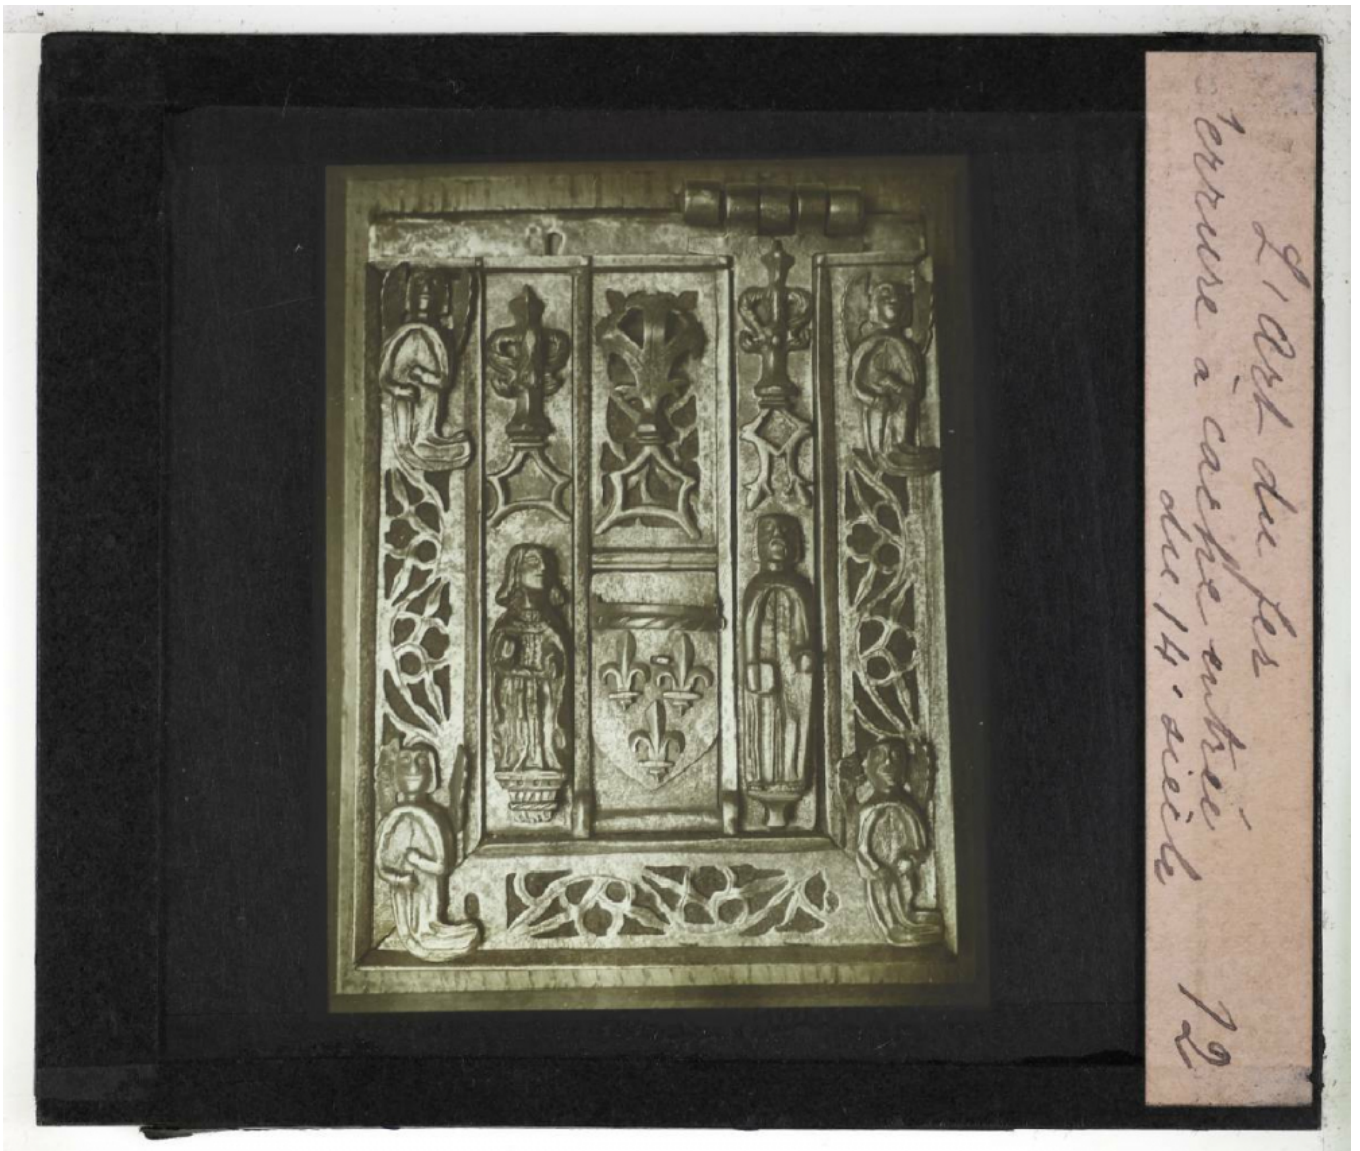 L'Art du fer
Serrure à cache entrée
du 14e siècle
12